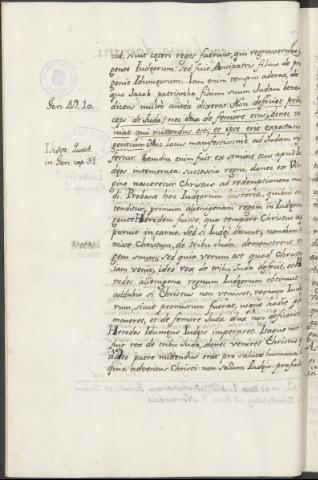 vid, sive ceteri reges fuerunt, qui regnaverunt
gente Iudęorum. Sed fuit Antipatris filius de
gente Idumęorum. Iam enim tempus aderat, de
quo Iacob patriarcha filium suum Iudam bene
dicens multo antea dixerat. Non deficiet prin
Gen. 49. 10.
ceps de Iuda, nec dux de femore eius, donec ve
niat qui mittendus est, et ipse erit expectatio
gentium. Hic locus manifestissime ad Iudam re
Isidor. Iudit
in Gen. cap. 31.
fertur. Tamdiu enim fuit ex semine eius apud Iu
dęos intemerata successio regni, donec ex Vir
gine nasceretur Christus ad redemptionem mun
di. Probant hoc Iudęorum historię, quibus os
tenditur, primum alienigenam regem in Iudęorum
gente Herodem fuisse, quo tempore Christus ap
paruit in carne. Sed si Iudęi dicunt, nondum
venisse Christum, de tribu Iuda, demonstrent re
gem suum, sed quia verum est quod Christus
iam venit, ideo rex de tribu Iuda defecit, et
reges alienigena regnum Iudęorum obtinuit
si Christus non venisset, regnum Iudęo
rum, sicut promissum fuerat, usque hodie per
maneret, et de femore Iuda dux non deficeret
Herodes Idumęus Iudęis imperaret. Itaque non
fuit rex de tribu Iuda, donec veniret Christus
Deo patre mittendus erat pro salute humana.
quia adventus Christi non solum Iudęis profuit